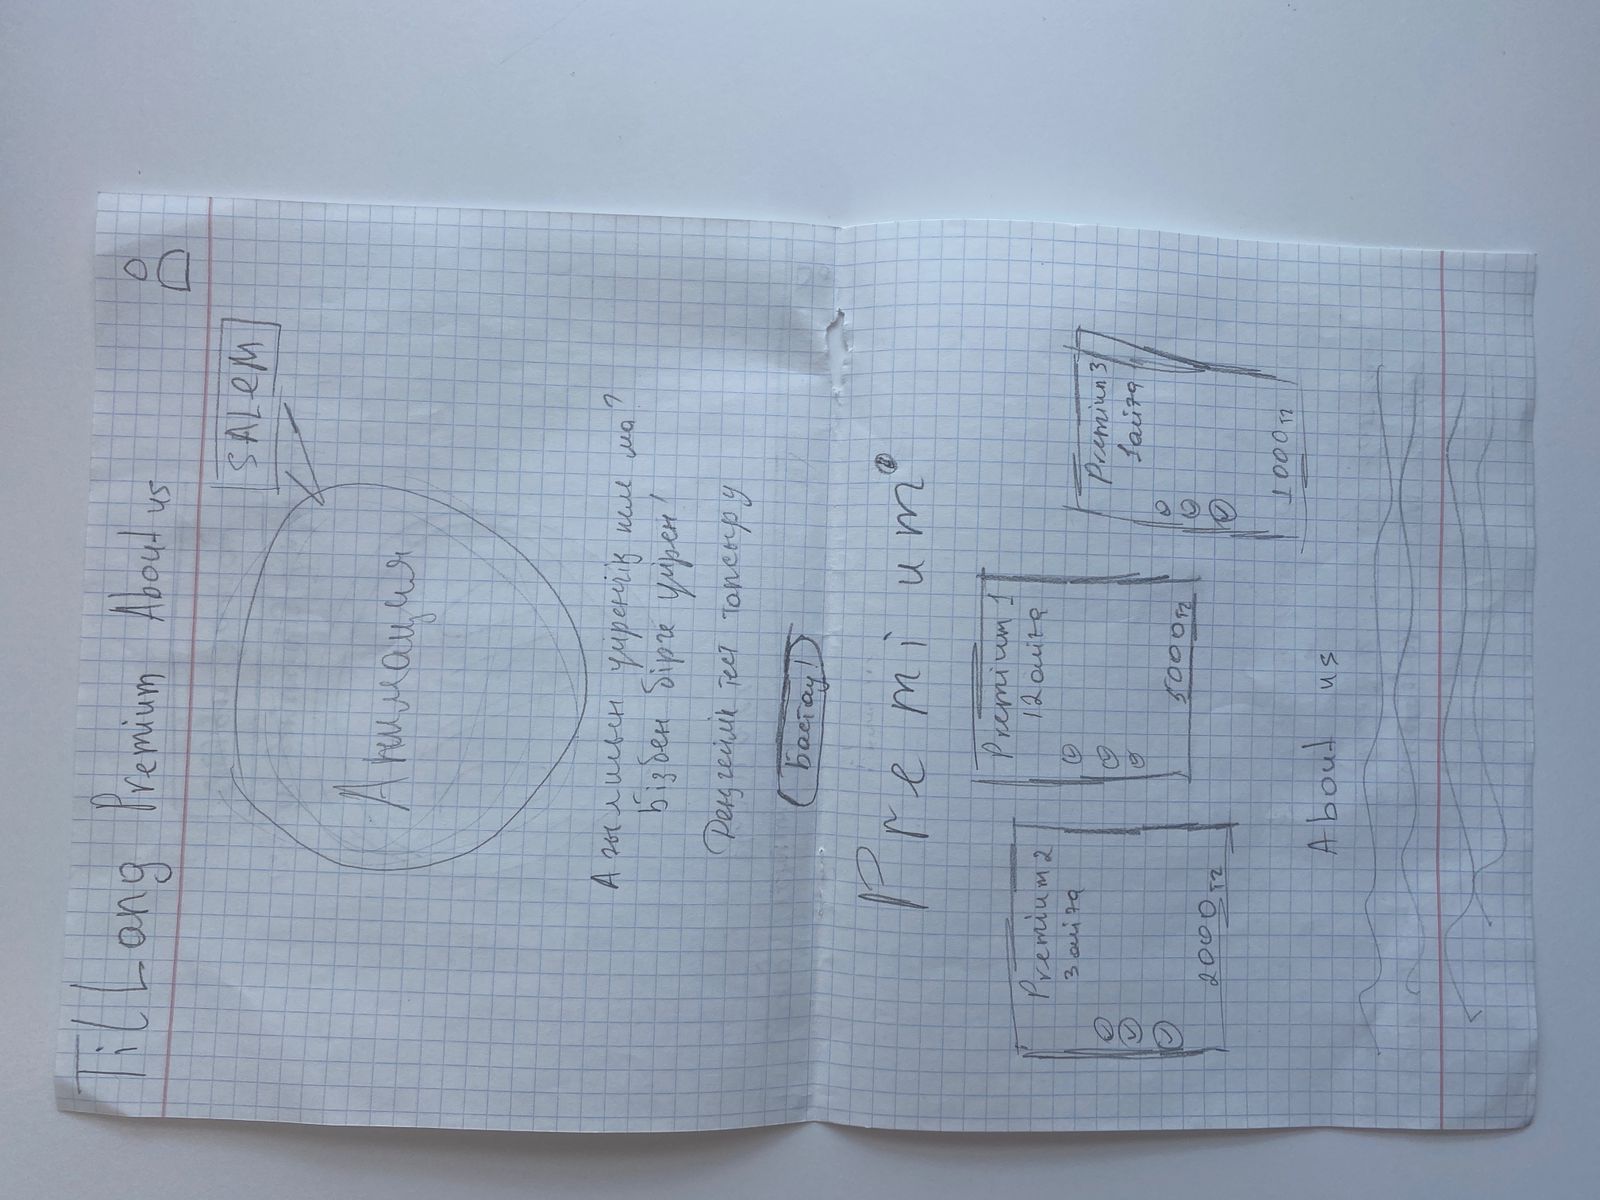 TilLang Premium About us
SALEM
Анимация
Ағылшын үйренгің келе ма?
Бізбен бірге үйрен!
Деңгейлік тест тапсыру
Бастау!
Premium
Premium 2
3 айға
2000тг
Premium 1
12 айға
5000тг
Premium 3
1 айға
1000тг
About us